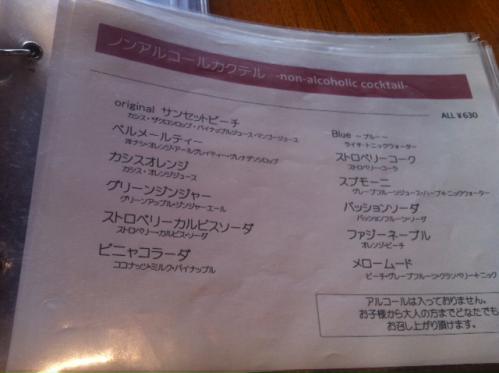 ノンアルコールカクテル -non-alcoholic cocktail-
ALL ¥630
original サンセットピーチ
カシス・ザクロシロップ・パイナップルジュース・マンゴージュース
ベルメールティー
洋ナシ・オレンジ・アールグレイティー・グレナデンシロップ
カシスオレンジ
カシス・オレンジジュース
グリーンジンジャー
グリーンアップル・ジンジャーエール
ストロベリーカルピスソーダ
ストロベリー・カルピス・ソーダ
ピニャコラーダ
ココナッツ・ミルク・パイナップル
Blue ～ブルー～
ライチ・トニックウォーター
ストロベリーコーク
ストロベリー・コーラ
スプモーニ
グレープフルーツジュース・ハーブ・トニックウォーター
パッションソーダ
パッションフルーツ・ソーダ
ファジーネーブル
オレンジ・ピーチ
メロームード
ピーチ・グレープフルーツ・クランベリー・トニック
アルコールは入っておりません。
お子様から大人の方までどなたでも
お召し上がり頂けます。